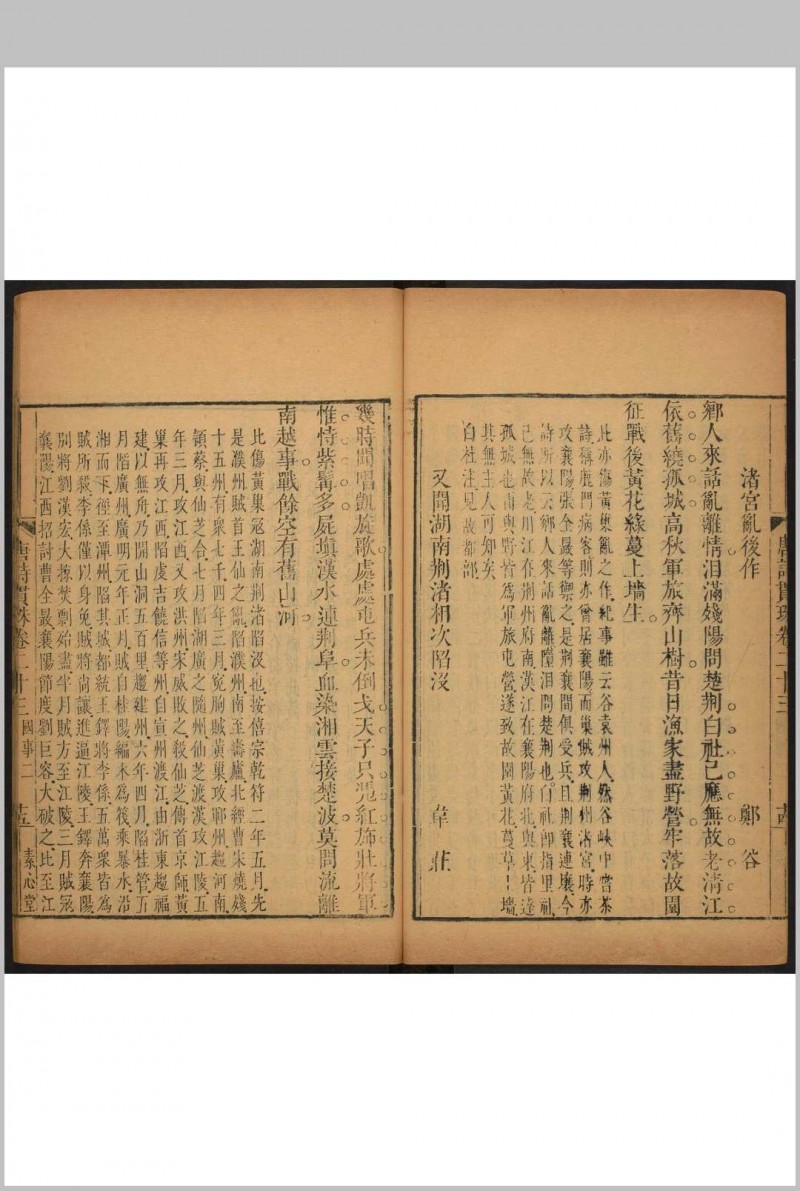 渚宮亂後作　鄭谷
鄉人來話亂離情淚滿殘陽問楚荆白社已應無故老清江
依舊繞孤城高秋軍旅齊山樹昔日漁家盡野營牢落故園
征戰後黃花綠蔓上墻生
此亦傷黃巢亂之作紀事雖云谷袁州人然谷峽中嘗茶
詩稱鹿門病客則亦曾居襄陽而巢賊攻荆州渚宮時亦
攻襄陽張全晸等禦之是荆襄間俱受兵且荆襄連壤今
詩所以云鄉人來話亂離墮淚問楚荆也白社即指里社
已無故老川江在荆州府南漢江在襄陽府北與東皆遶
孤城也南與野皆爲軍旅屯營遂致故園黃花蔓草上墻
其無主人可知矣
白社注見故都部
又聞湖南荆渚相次陷沒　韋莊
唐詩貫珠卷二十三
幾時聞唱凱旋歌處處屯兵未倒戈天子只凴紅斾壯將軍
惟恃紫髯多屍塡漢水連荆阜血染湘雲接楚波莫問流離
南越事戰餘空有舊山河
此傷黃巢寇湖南荆渚陷沒也按僖宗乾符二年五月先
是濮州賊首王仙之亂陷濮州南至壽廬北經曹宋燒殘
十五州有衆七千四年三月寃朐賊黃巢攻鄆州趨河南
領蔡與仙芝合七月陷湖廣之隨州仙芝渡漢攻江陵五
年三月攻江西又攻洪州宋威敗之殺仙芝傳首京師黃
巢再攻江西陷虔吉饒信等州自宣州渡江由浙東趨福
建以無舟乃開山洞五百里趨建州六年四月陷桂管五
月陷廣州廣明元年正月賊自桂陽編木爲筏乘暴水沿
湘而下徑至潭州陷其城都統王鐸將李係五萬衆皆爲
賊所殺李係僅以身免賊將尚讓進逼江陵王鐸奔襄陽
別將劉漢宏大掠焚剽殆盡半月賊方至江陵三月賊寇
襄陽江西招討曹全晸襄陽節度劉巨容大破之比至江
唐詩貫珠卷二十三　國事二　素心堂